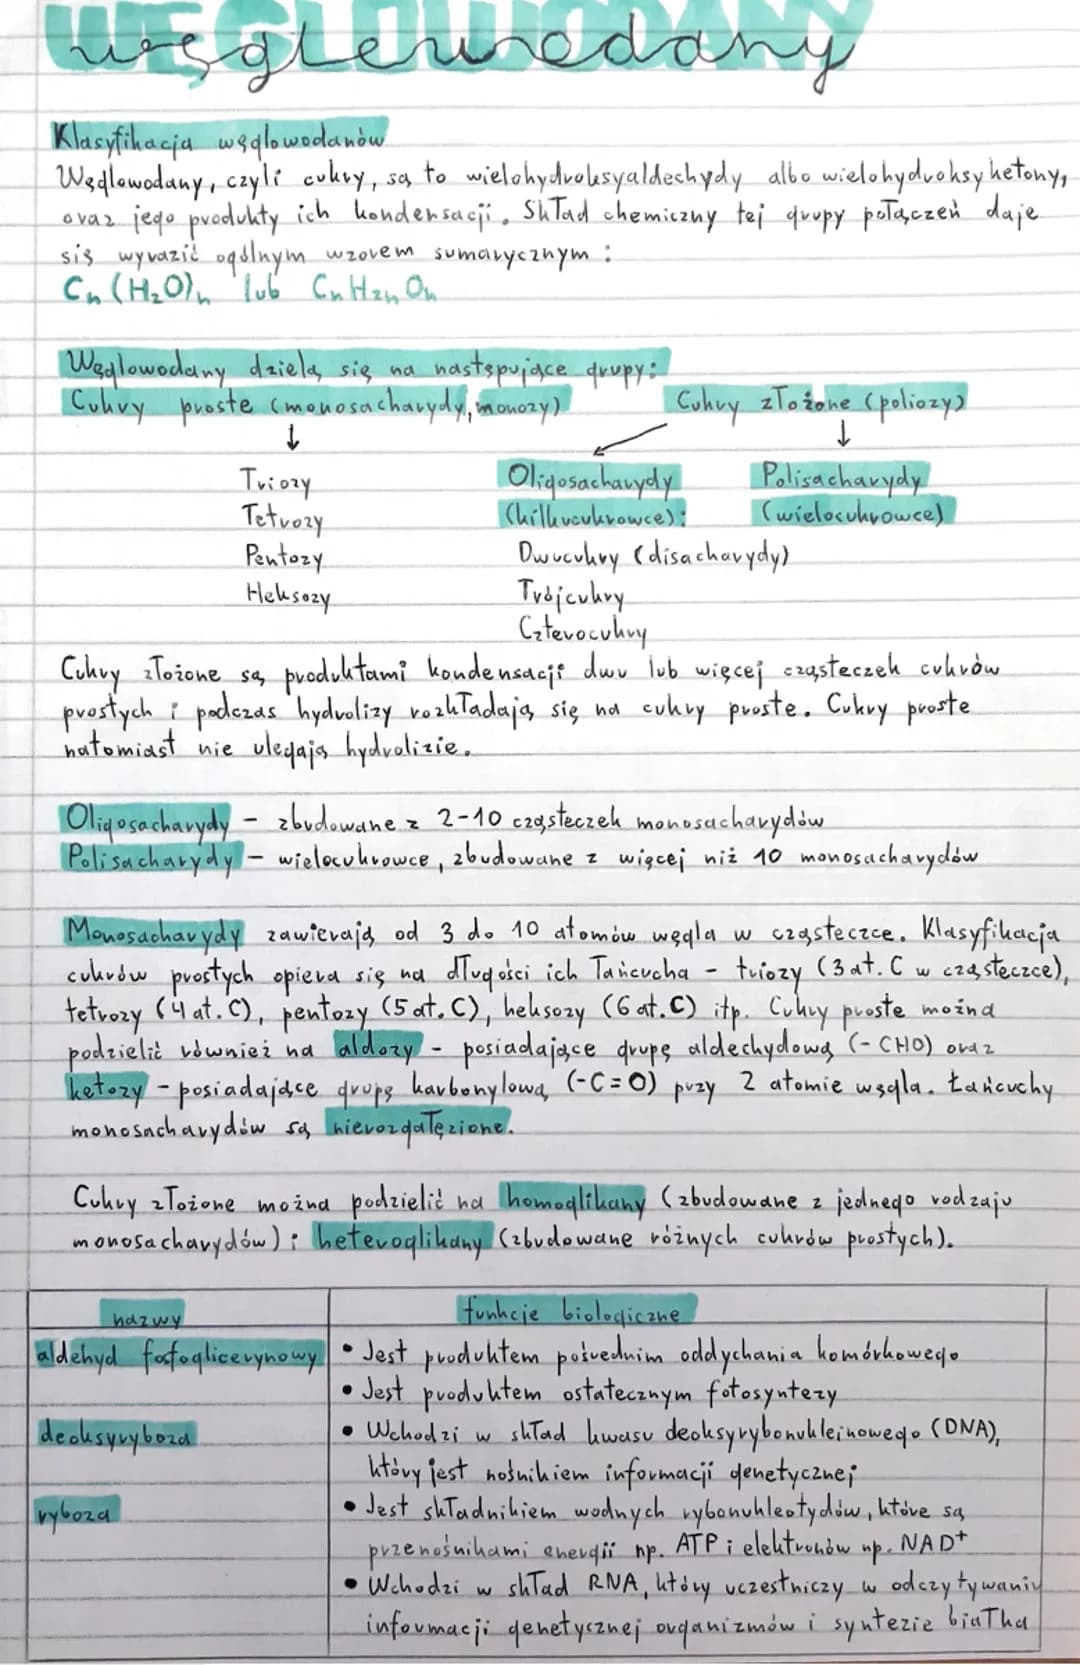 WĘGLOWODANY
węglowodany
Klasyfikacja węglowodanów
Węglowodany, czyli cukry, są to wielohydroksyaldechydy albo wielohydroksyketony,
oraz jego produkty ich kondensacji. Skład chemiczny tej grupy połączeń daje
się wyrazić ogólnym wzorem sumarycznym:
Cn(H₂O)n lub CnH2nOn
Węglowodany dzielą się na następujące grupy:
Cukry proste (monosacharydy, monozy) Cukry złożone (poliozy)
↓ ↙ ↓
Triozy Oligosacharydy Polisacharydy
Tetrozy (kilkucukrowce): (wielocukrowce)
Pentozy Dwucukry (disacharydy)
Heksozy Trójcukry
Czterocukry
Cukry złożone są produktami kondensacji dwu lub więcej cząsteczek cukrów
prostych i podczas hydrolizy rozkładają się na cukry proste. Cukry proste
natomiast nie ulegają hydrolizie.
Oligosacharydy - zbudowane z 2-10 cząsteczek monosacharydów
Polisacharydy - wielocukrowce, zbudowane z więcej niż 10 monosacharydów
Monosacharydy zawierają od 3 do 10 atomów węgla w cząsteczce. Klasyfikacja
cukrów prostych opiera się na długości ich łańcucha - triozy (3 at. C w cząsteczce),
tetrozy (4 at. C), pentozy (5 at. C), heksozy (6 at. C) itp. Cukry proste można
podzielić również na aldozy - posiadające grupę aldechydową (-CHO) oraz
ketozy - posiadające grupę karbonylową (-C=O) przy 2 atomie węgla. Łańcuchy
monosacharydów są nierozgałęzione.
Cukry złożone można podzielić na homoglikany (zbudowane z jednego rodzaju
monosacharydów) i heteroglikany (zbudowane różnych cukrów prostych).
nazwy funkcje biologiczne
aldehyd fosfoglicerynowy • Jest produktem pośrednim oddychania komórkowego
• Jest produktem ostatecznym fotosyntezy
deoksyryboza • Wchodzi w skład kwasu deoksyrybonukleinowego (DNA),
który jest nośnikiem informacji genetycznej
ryboza • Jest składnikiem wodnych rybonukleotydów, które są
przenośnikami energii np. ATP i elektronów np. NAD⁺
• Wchodzi w skład RNA, który uczestniczy w odczytywaniu
informacji genetycznej organizmów i syntezie białka